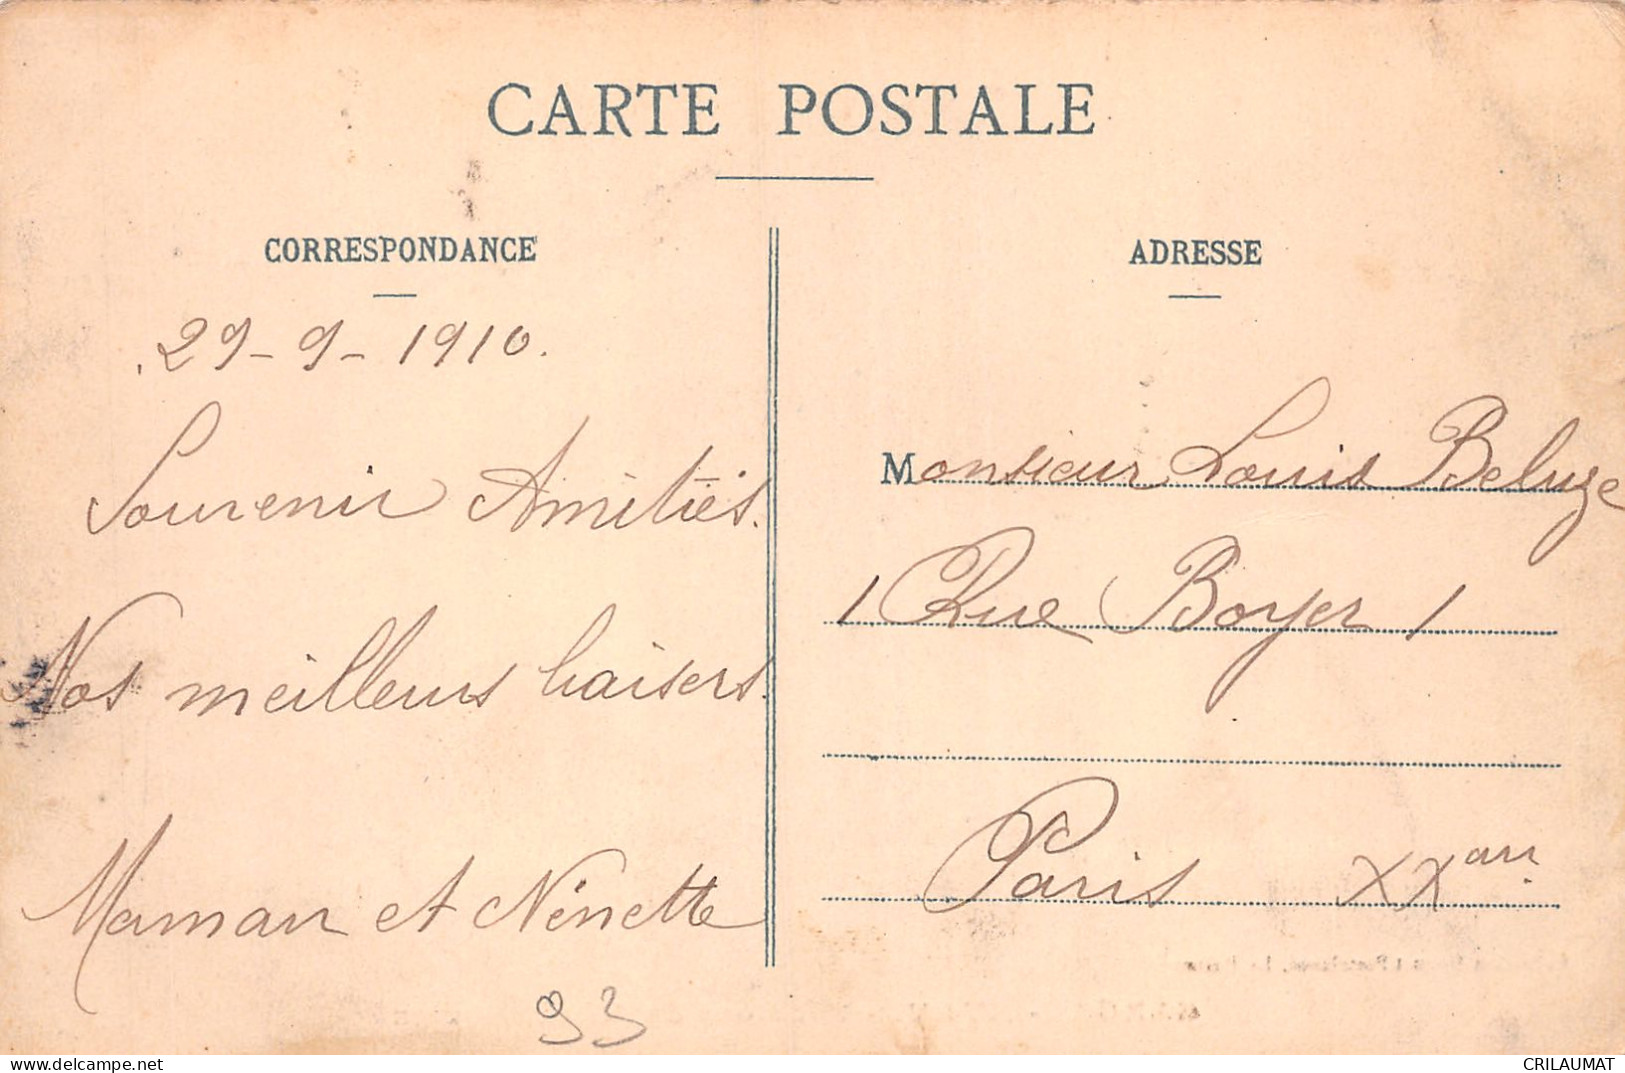 CARTE POSTALE
CORRESPONDANCE
29-9-1910.
Souvenir Amitiés.
Nos meilleurs baisers.
Maman et Nénette
93
ADRESSE
Monsieur Louis Beluze
1 Rue Boyer 1
Paris XXarr.
delcampe.net
CRILAUMAT